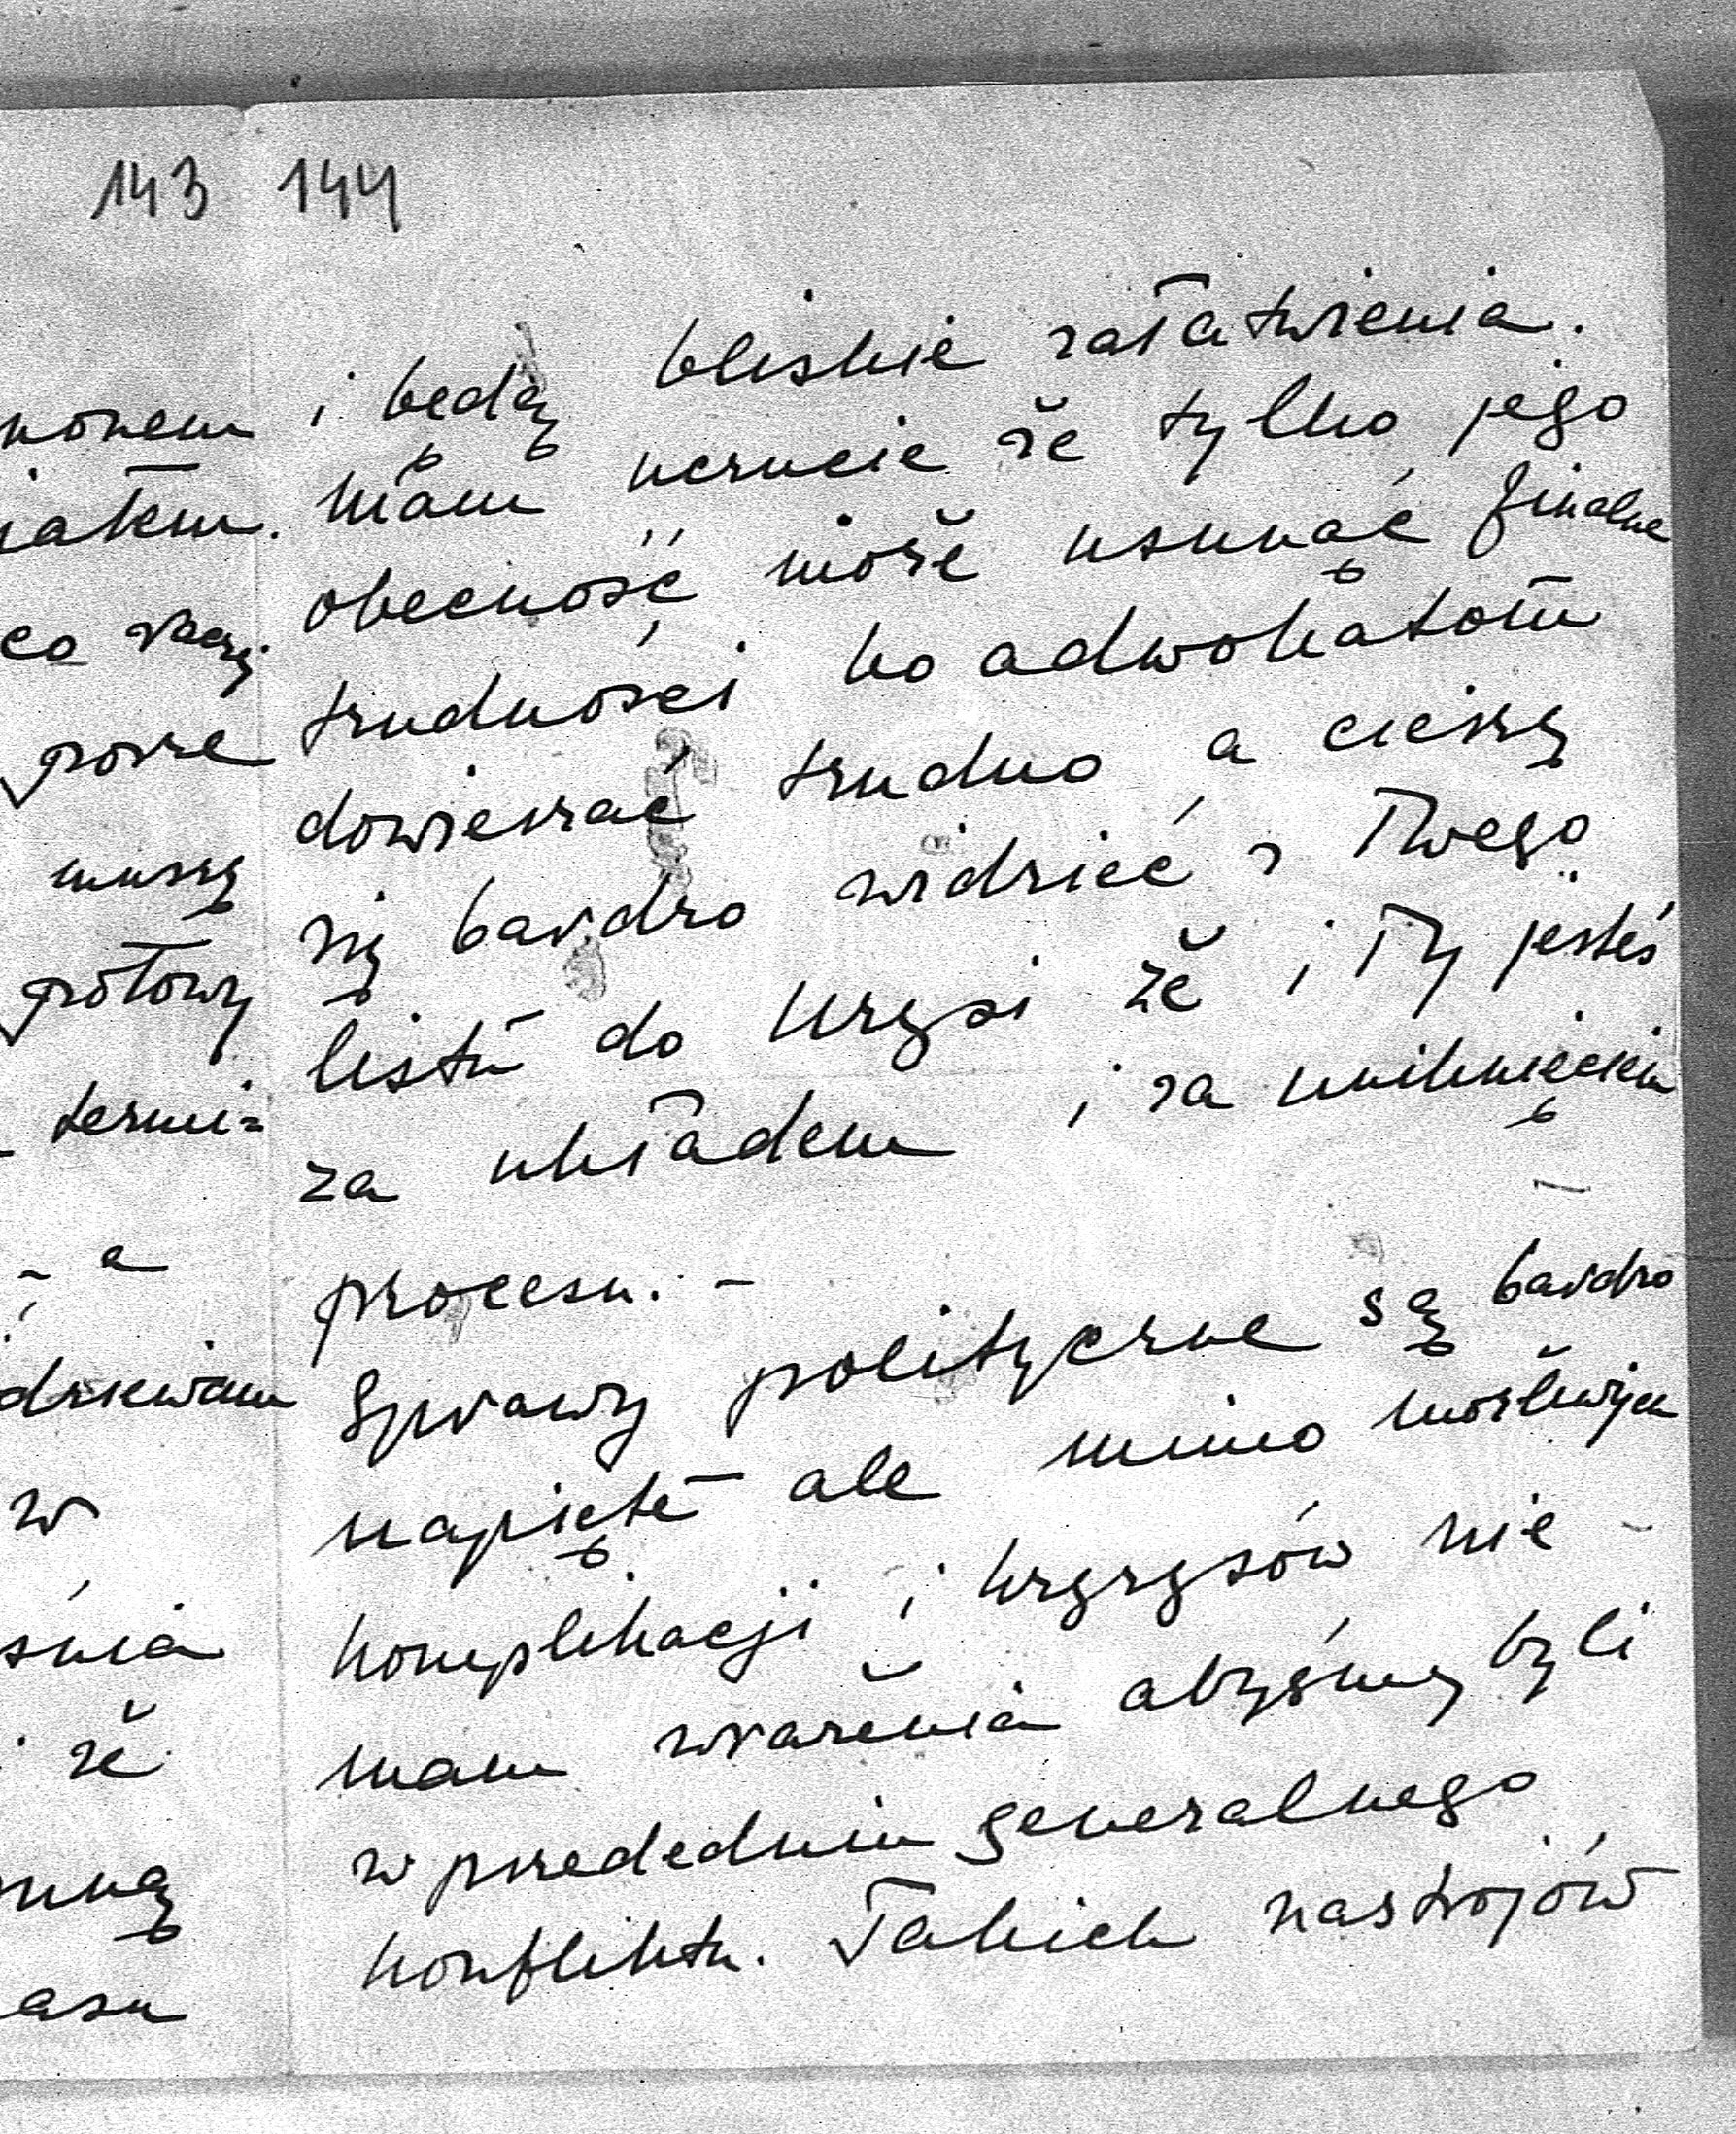 143 144
i będą bliskie załatwienia.
mam uczucie że tylko jego
obecność może usunąć finalne
trudności bo adwokatom
dowierzać trudno, a cieszę
się bardzo widzieć z Twego
listu do Krysi że i Ty jesteś
za układem i za uniknięciem
procesu. -
Sprawy polityczne są bardzo
napięte ale mimo możliwych
komplikacji i kryzysów nie
mam wrażenia abyśmy byli
w przededniu generalnego
konfliktu. Takich nastrojów
iatem.
co raczej
muszę
gotowy
termi=
a
w
że